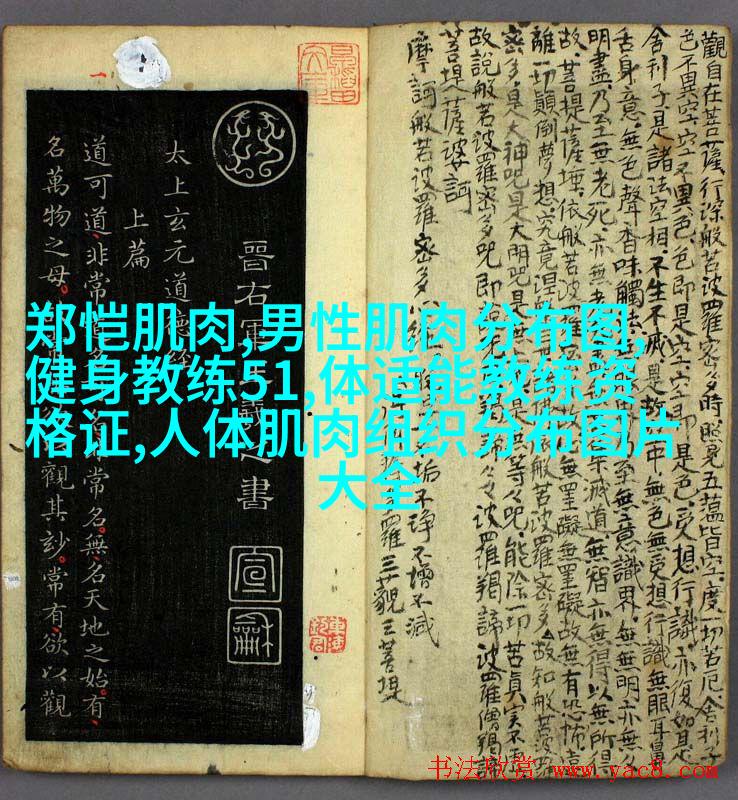 郑恺肌肉,男性肌肉分布图,
健身教练51,体适能教练资
格证,人体肌肉组织分布图片
大全
觀自在菩薩行深般若波羅密多時照見五蘊皆空度一切苦厄舍利子
色不異空空不異色色即是空空即是色受想行識亦復如是
舍利子是諸法空相不生不滅是故空中無色無受想行識無眼耳鼻
舌身意無色聲香味觸法至無意識界無無明亦無
明盡乃至無老死亦無老滅道無智亦無得以無所得
故菩提薩埵依般若波羅無罣礙無罣礙故無有恐怖遠
離一切顛倒夢想究竟涅波羅密多故知般若波
密多是大神咒是大明咒是無等々咒能除一切苦真實不
故說般若波羅密多咒即揭諦々々波羅揭諦波羅僧揭諦
菩提薩婆訶
摩訶般若波羅密多心
垢不淨不增不減
羅三藐三菩提
晉右軍王羲之書
太上玄元道德經
上篇
道可道非常常名無名天地之始有
名萬物之母觀其妙常有欲以觀
宣
龢
书法欣赏 www.yac8.com